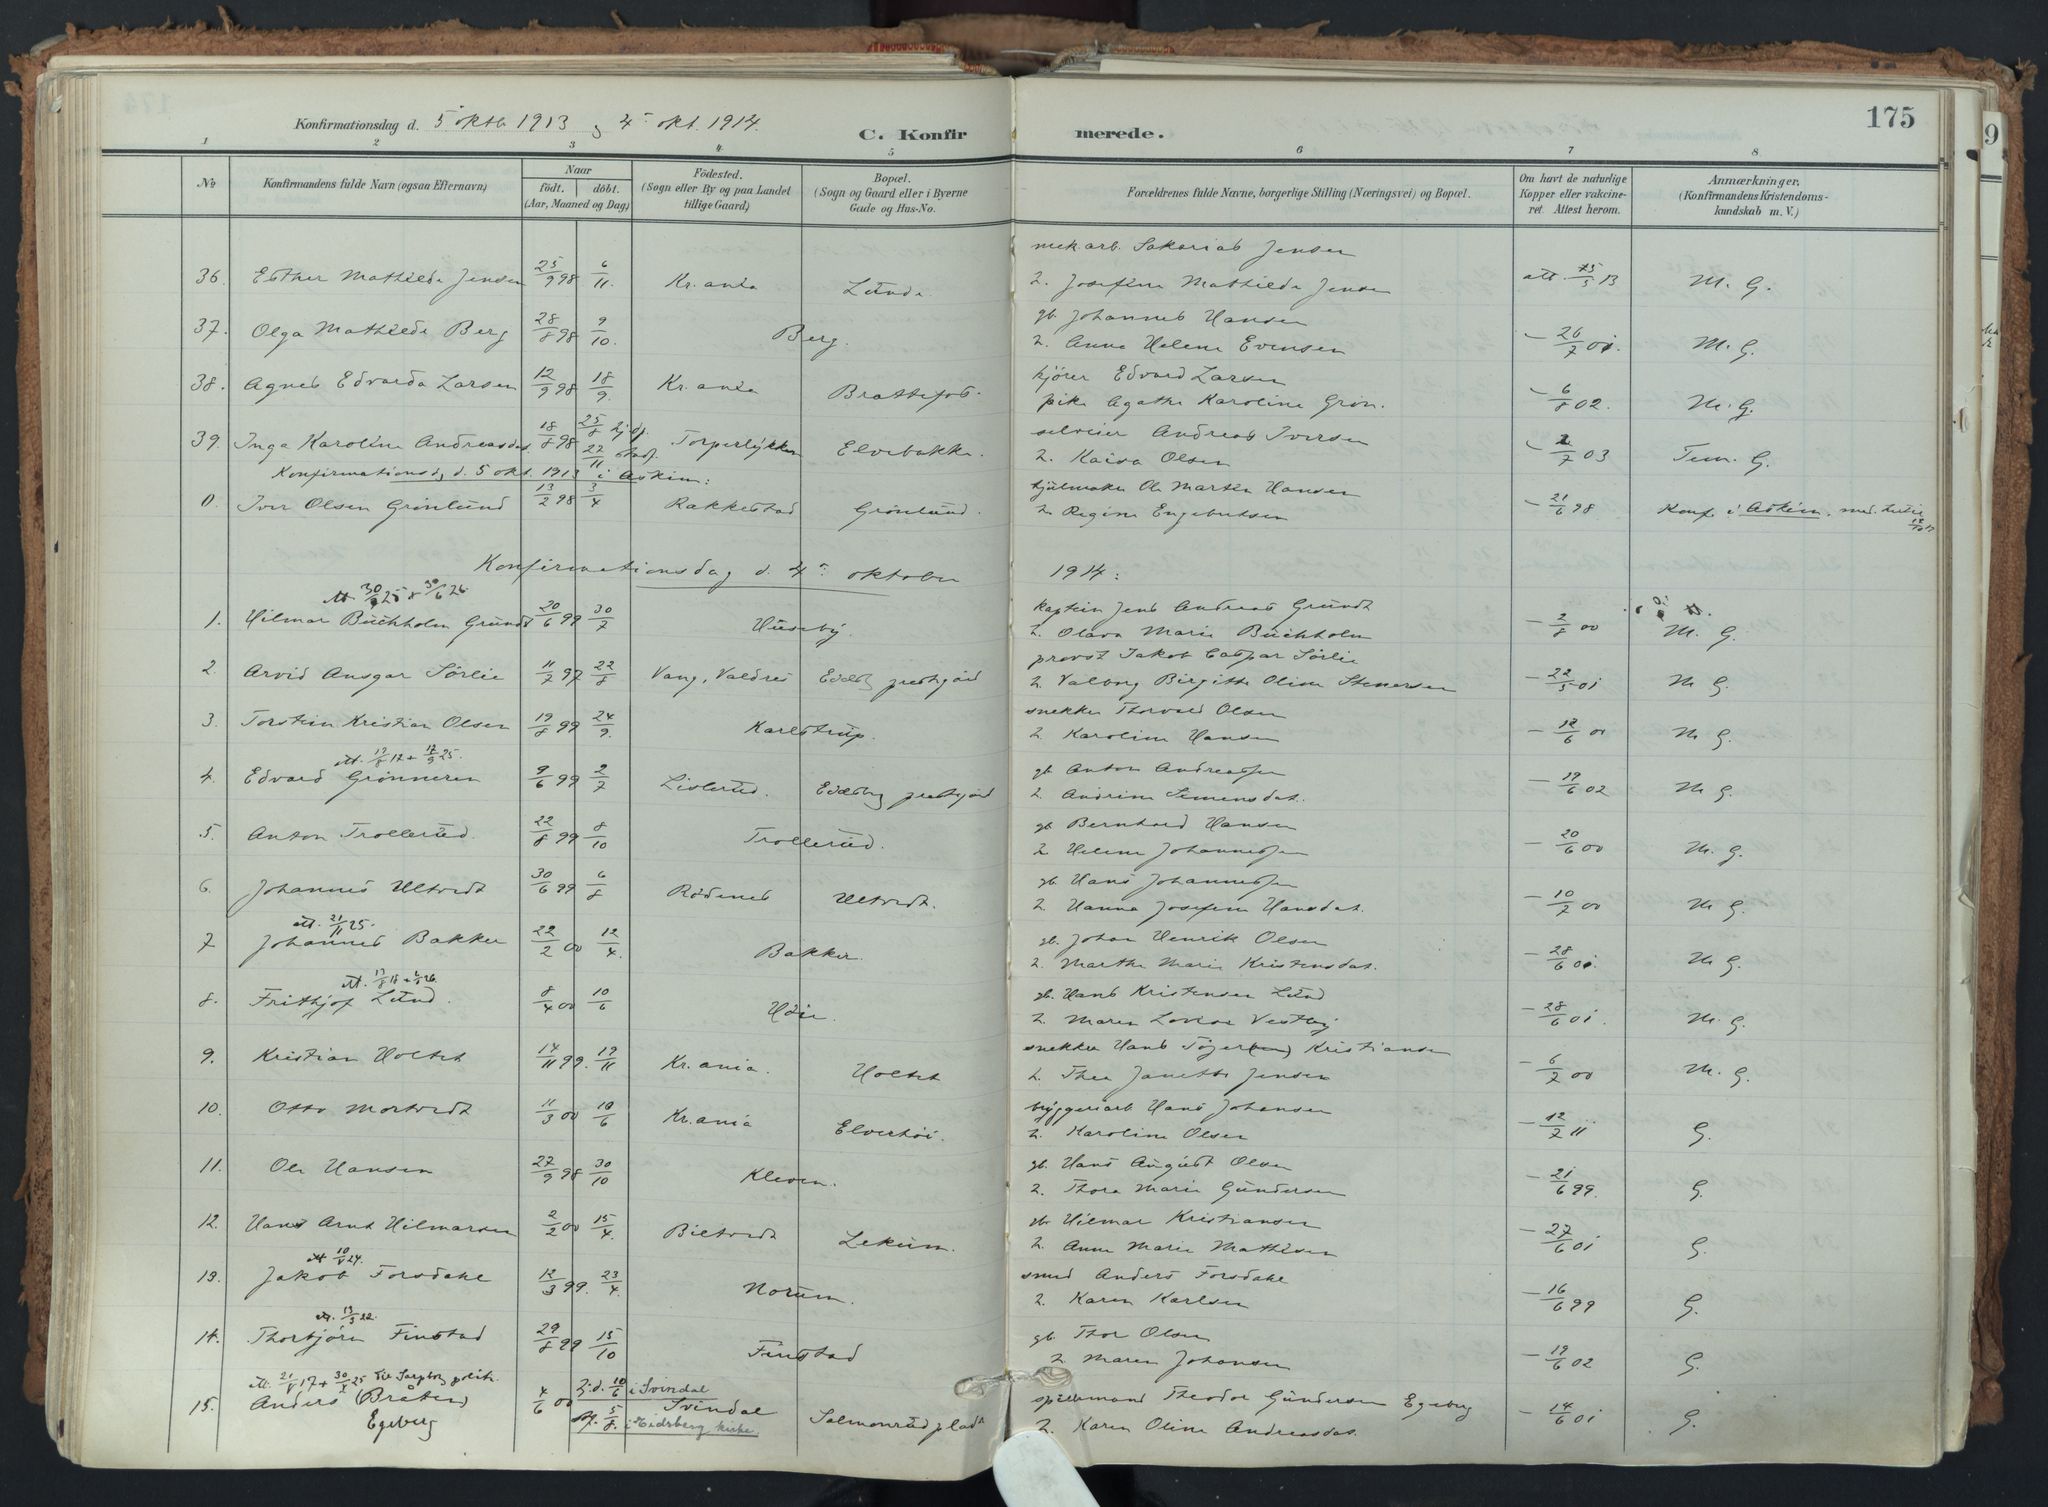 175
Konfirmationsdag d. 5 oktb. 1913 og 4 okt. 1914.
C. Konfir merede.
1 2 3 4. 5 6 7 8
No
Konfirmandens fulde Navn (ogsaa Efternavn)
Naar
födt. döbt.
(Aar, Maaned og Dag)
Födested.
(Sogn eller By og paa Landet
tillige Gaard)
Bopæl.
(Sogn og Gaard eller i Byerne
Gade og Hus-No.
Forældrenes fulde Navne, borgerlige Stilling (Næringsvei) og Bopæl.
Om havt de naturlige
Kopper eller vakcine-
ret Attest herom.
Anmærkninger,
(Konfirmandens Kristendoms-
kundskab m. V.)
mek arb. Sakarias Jensen
36. Esther Mathilde Jensen 25/9 98 6/11. Kr.ania Lunde. 2. Josefine Mathilde Jensen att. 5 13 M. G.
gb. Johannes Hansen
37. Olga Mathilde Berg 28/8 98 9/10. Berg. 2. Anne Helene Evensen - 26/7 01. M. G.
kjører Edvard Larsen
38. Agnes Edvarda Larsen 12/9 98 18/9. Kr.ania Brattefos. pike Agathe Karoline Grön. - 6/8 02. M. G.
39. Inga Karoline Andreasdat 18/8 98 25/8 hj.dp. 22/11 stadf. Torperlykken Elvebakke. selveier Andreas Iversen
2. Kaisa Olsen - 2/7 03 Tem. G.
Konfirmationsdag d. 5 okt. 1913 i Askim:
0. Iver Olsen Grönlund 13/2 98 3/4 Rakkestad Grönlund. hjulmaker Ole Martin Hansen
2. Regine Engebretsen - 21/6 98 Konf. i Askim. med.
Konfirmationsdag d. 4de oktober 1914:
att 30 25 & 30/6 26.
1. Hilmar Buchholm Grundt 20/6 99 30/7 Huseby. kaptein Jens Andreas Grundt
2. Olava Marie Buchholm - 2/8 00 M. G.
2. Arvid Ansgar Sörlie 11/7 97 22/8 Vang, Valdres Eidsbg prestgård provst Jakob Caspar Sörlie
2. Valborg Birgitte Oline Stenersen - 22/5 01 M G.
3. Torstein Kristian Olsen 19/8 99 24/9. Karlstrup. snekker Thorvald Olsen
2. Karoline Hansen - 12/6 01 M G.
att. 17 + 17/9 25.
4. Edvard Grönneren 9/6 99 2/7 Lislerud. Eidsbg prestgård gb. Anton Andreassen
2. Andrine Simensdat. - 19/6 02 M G.
5. Anton Trollerud. 22/8 99 8/10 Trollerud. gb. Bernhard Hansen
2. Helene Johannessen - 20/6 00 M. G.
6. Johannes Ultvedt 30/6 99 6/8 Rödenes Ultvedt. gb. Hans Johannessen
2. Hanna Josefine Hansdat. - 10/7 00 M G.
att. 21/11 25.
7 Johannes Bakker 22/2 00 12/4. Bakker. gb. Johan Henrik Olsen
2. Marthe Marie Kristensdat. - 28/6 01. M G.
8. Frithjof Lund. 8/4 00 10/6 Höie. gb. Hans Kristensen Lund
2. Maren Lovise Vestby - 28/6 01. M. G.
9. Kristian Holtet 14/11 99. 19/11 Kr.ania. Holtet snekker Hans Töger(sen) Kristiansen
2. Thea Janette Jensen - 6/7 00 M. G.
10. Otto Mortvedt 11/3 00 10/6 Kr.ania Elverhöi. bryggeriarb Hans Johansen
2. Karoline Olsen - 12/7 11 G.
11. Ole Hansen 27/9 98 30/10 Kleven. gb. Hans August Olsen
2. Thora Marie Gundersen - 21/6 99. G.
12. Hans Arnt Hilmarsen 2/2 00 15/4. Bietvedt Lekum. gb. Hilmar Kristiansen
2. Anne Marie Mathisen - 27/6 01 G.
att 10 24.
13. Jakob Forsdahl 12/3 99. 23/4. Norum. smed Anders Forsdahl
2. Karen Karlsen - 16/6 99 G.
att. 13/3 22.
14. Thorbjörn Finstad 29/8 99 15/10 Finstad gb. Thor Olsen
2. Maren Johansen - 19/6 02 G.
att. 21 17 + 30 25 til Sarpborg politk.
15. Anders (Bråten) Egeberg 4/6 00 hj.d. 10/6 i Svindal
5/8. i Eidsberg kirke. Svindal Salmonrud plads spillemand Theodor Gundersen Egeberg
2. Karen Oline Andreasdat. - 14/6 01 G.